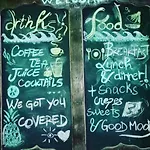 WELCOME
drinks
COFFEE
TEA
JUICE
COCKTAILS
WE GOT YOU
COVERED
food
BREAKFAST
Lunch
& dinner!
+ SNACKS
CREPES
Sweets
& GOOD MOOD